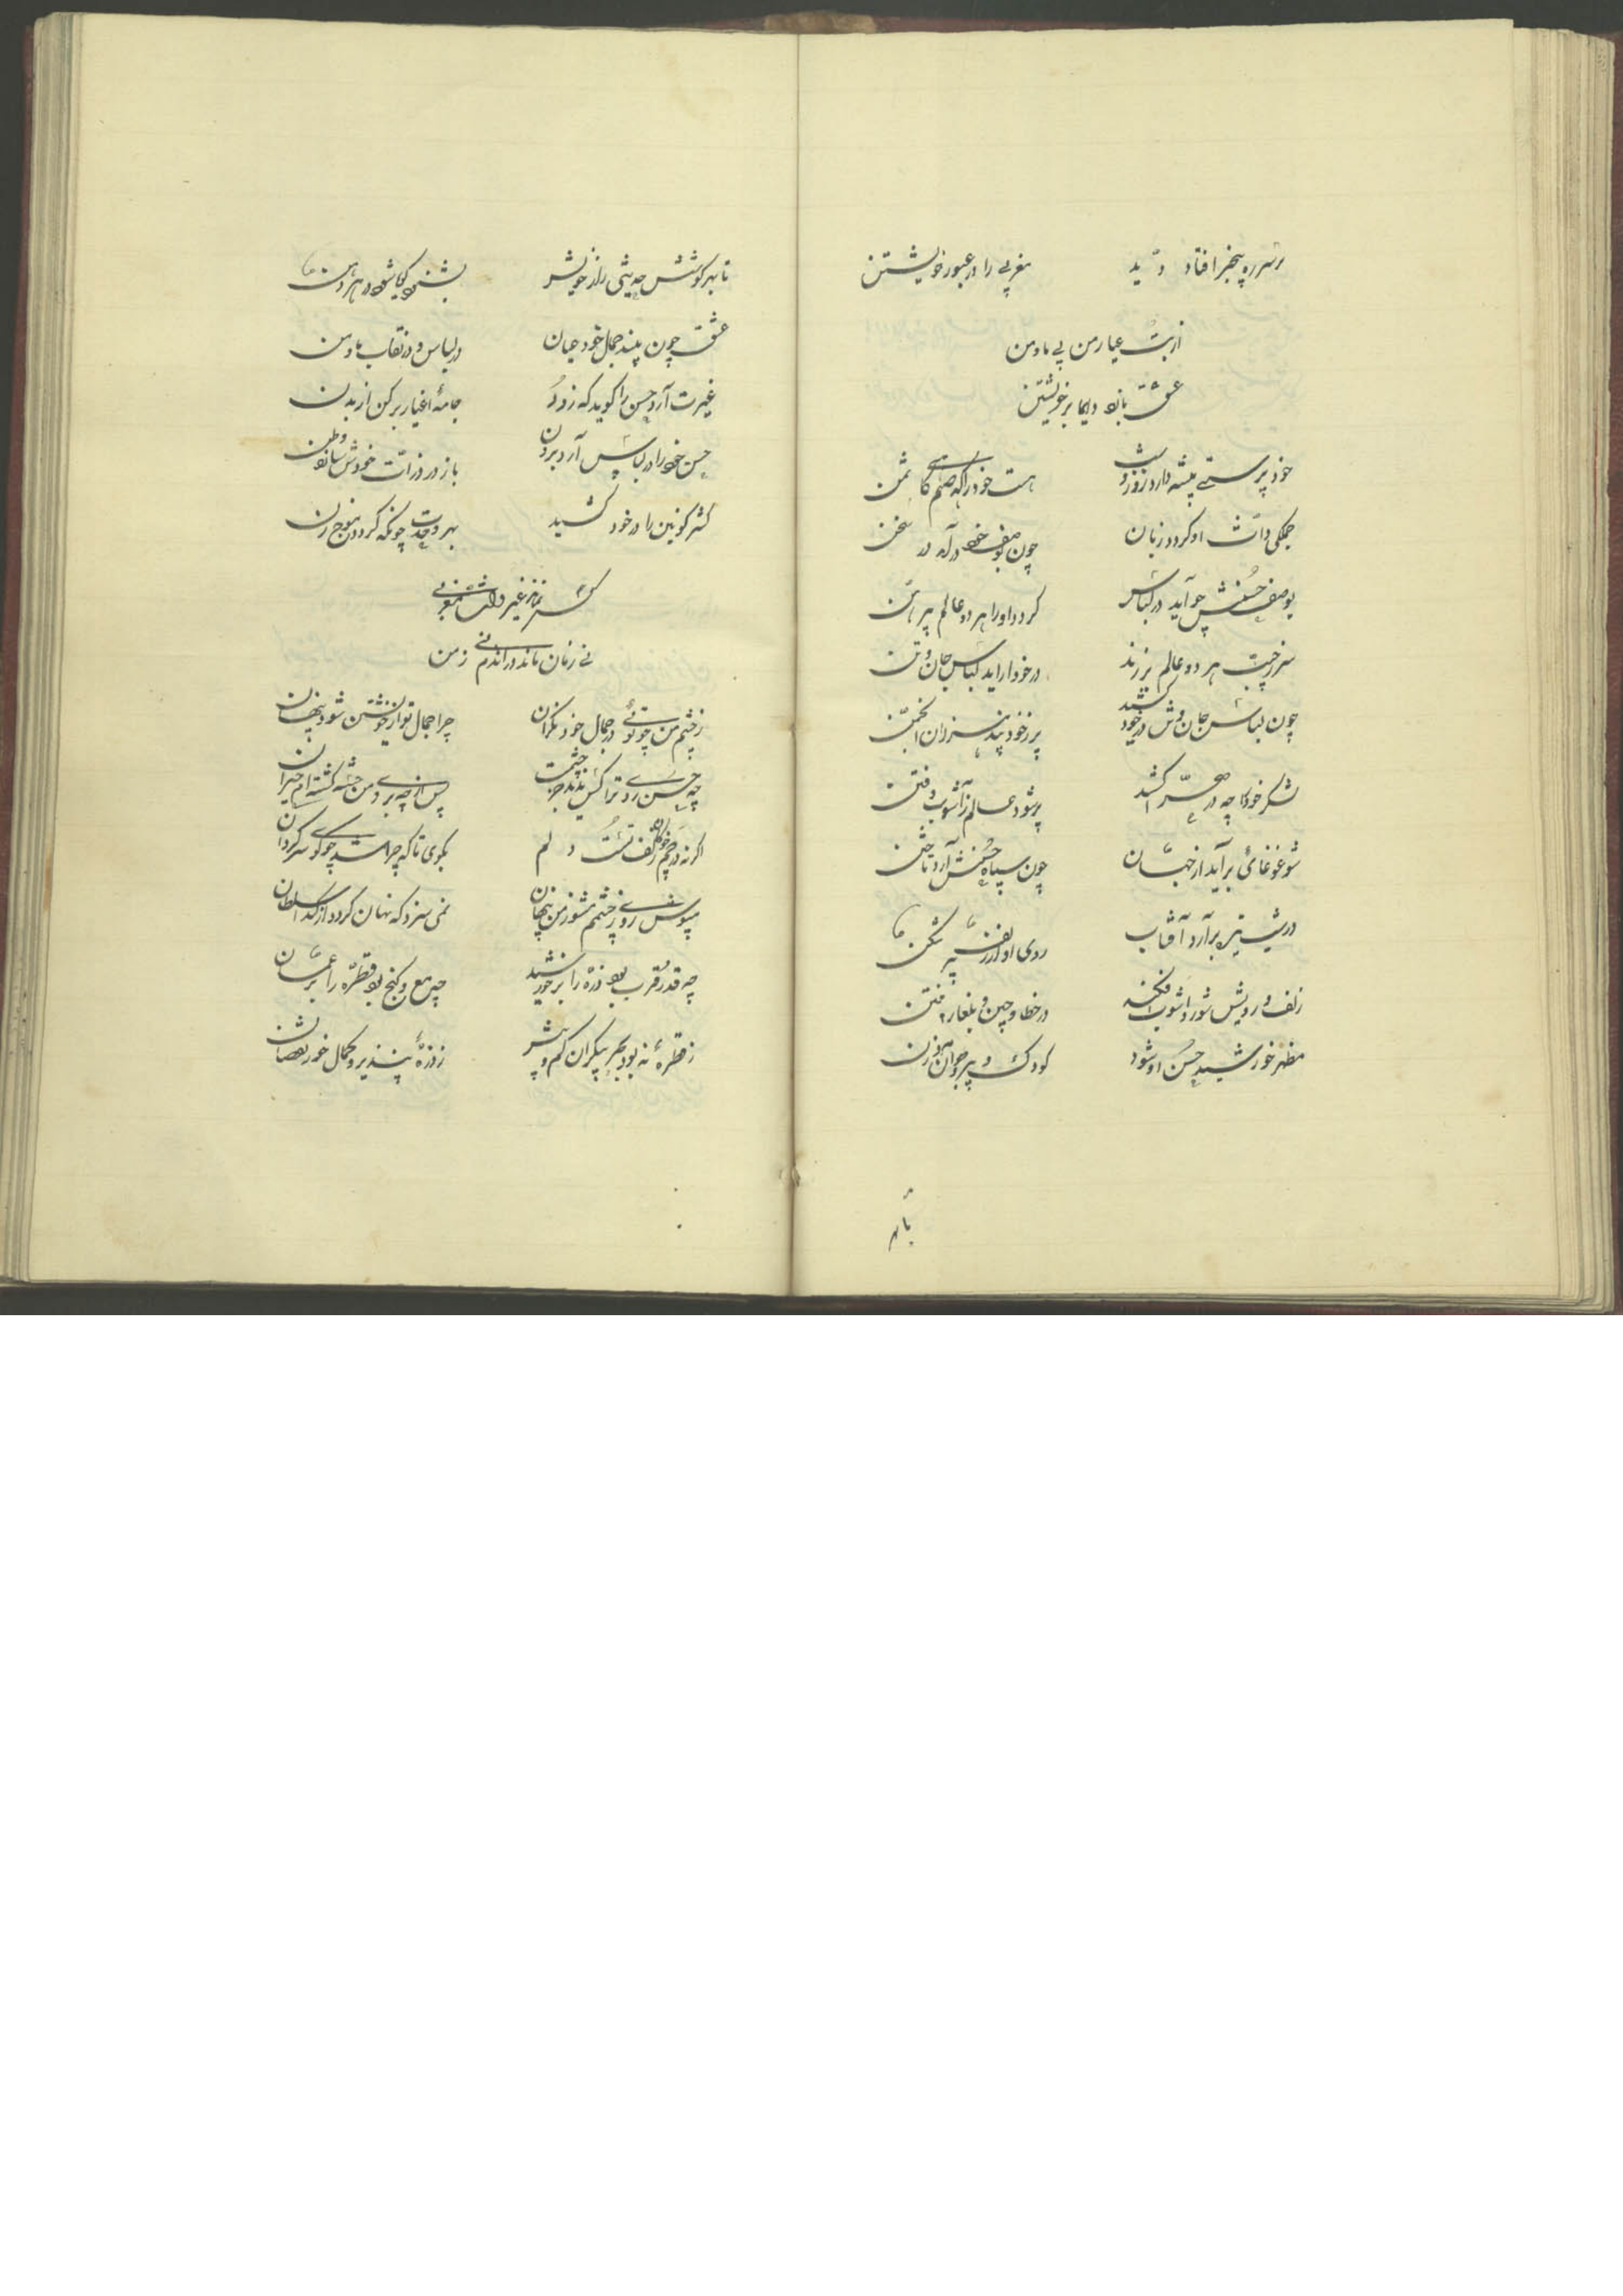 بر سر ره بیخبر افتاد دید مغربی را در عبور خویشتن
از بت عیار من بی ما و من
عشق بازد دایما بر خویشتن
خود پرستی پیشه دارد روز و شب هست خود را گه صنم گاهی شمن
جملگی ذات او گردد زبان چون بوصف خود در آید در سخن
یوسف حسنش چو آید در لباس گردد او را هر دو عالم پیرهن
سر ز جیب هر دو عالم بر زند در خود آراید لباس جان و تن
چون لباس جان و تن در خود کشید پر ز خود بیند هزاران انجمن
لشکر خود را چه در صحرا کشد پر شود عالم ز آشوب و فتن
شور و غوغائی برآید از جهان چون سپاه حسنش آرد تاختن
در شب تیره برآرد آفتاب روی او از زلف پر شکن
زلف و رویش شور و آشوب افکند در خطا و چین و بلغار و ختن
مظهر خورشید حسن او شود کودک و پیر و جوان مرد و زن
تا بهر
تا بهر گوشش حدیثی راز خویش بشنود گویا شود در هر دهن
عشق چون بیند جمال خود عیان در لباس و در نقاب ما و من
غیرت آرد حسن را گوید که زود جامهٔ اغیار بر کن از بدن
حسن خود را در لباس آرد برون باز در ذرات خودش سازد وطن
کثر کونین را در خود کشید بهر وحدت چونکه گردد موج زن
کس نماند غیر ذات مغربی
نی زمان ماند در آندم نی زمن
ز چشم من چو توئی در جمال خود نگران چرا جمال تو از خویشتن شود پنهان
چه حسن روی ترا کس ندید جز چشمت پس از چه روی من خسته گشته ام حیران
اگر نه در خم چوگان زلف تست دلم بگوی تا که چرا شد چو گوی سرگردان
مپوش روی ز چشمم مشو ز من پنهان نمی سزد که نهان گردد از گدا سلطان
چه قدر و قرب بود ذره را بر خورشید چه وسع و گنج بود قطره را بر عمان
ز قطرهٔ نه بود بحر بیکران کم و بیش ز ذرهٔ نپذیرد کمال خور نقصان